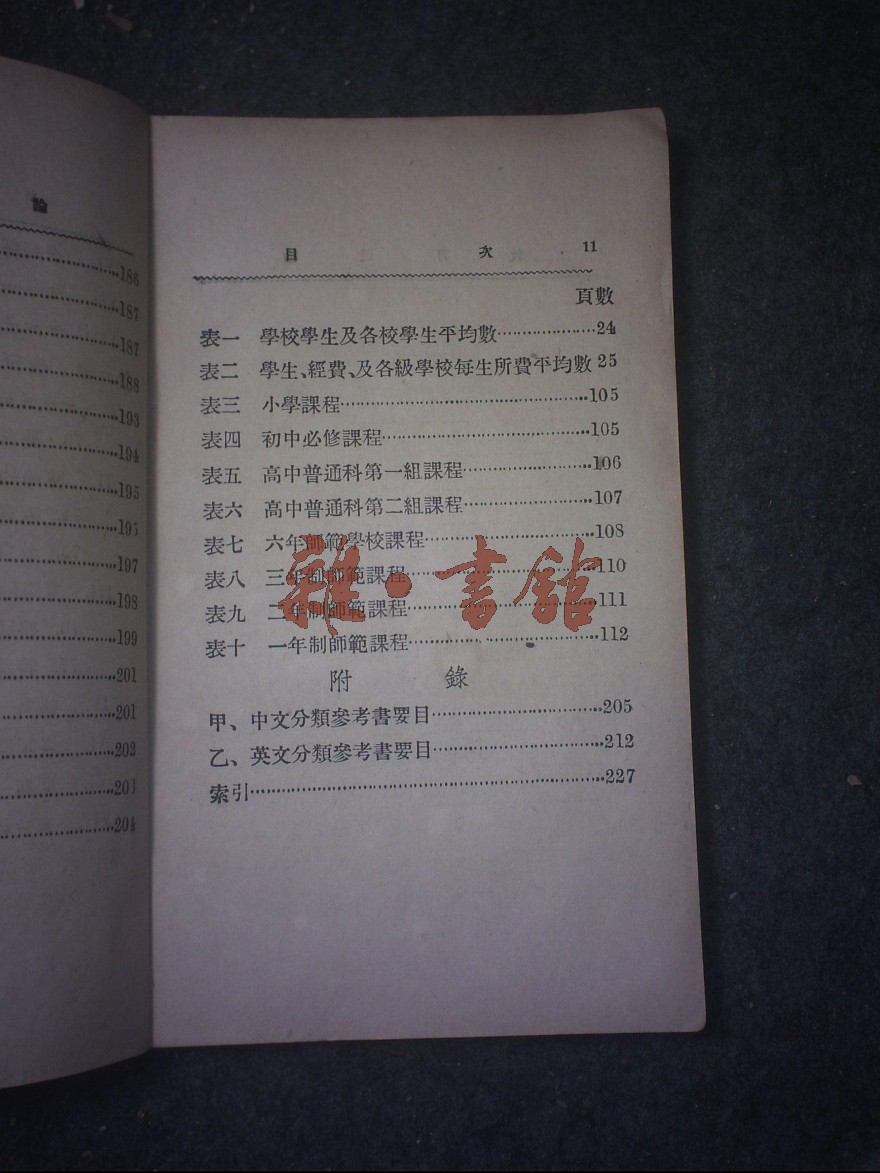 論
186
187
187
188
193
194
195
195
197
198
199
201
201
202
203
204
目 次 11
頁數
表一 學校學生及各校學生平均數…………………24
表二 學生、經費、及各級學校每生所費平均數 25
表三 小學課程…………………………………………105
表四 初中必修課程……………………………………105
表五 高中普通科第一組課程…………………………106
表六 高中普通科第二組課程…………………………107
表七 六年師範學校課程………………………………108
表八 三年制師範課程…………………………………110
表九 二年制師範課程…………………………………111
表十 一年制師範課程…………………………………112
雜·書館
附 錄
甲、中文分類參考書要目………………………………205
乙、英文分類參考書要目………………………………212
索引………………………………………………………227